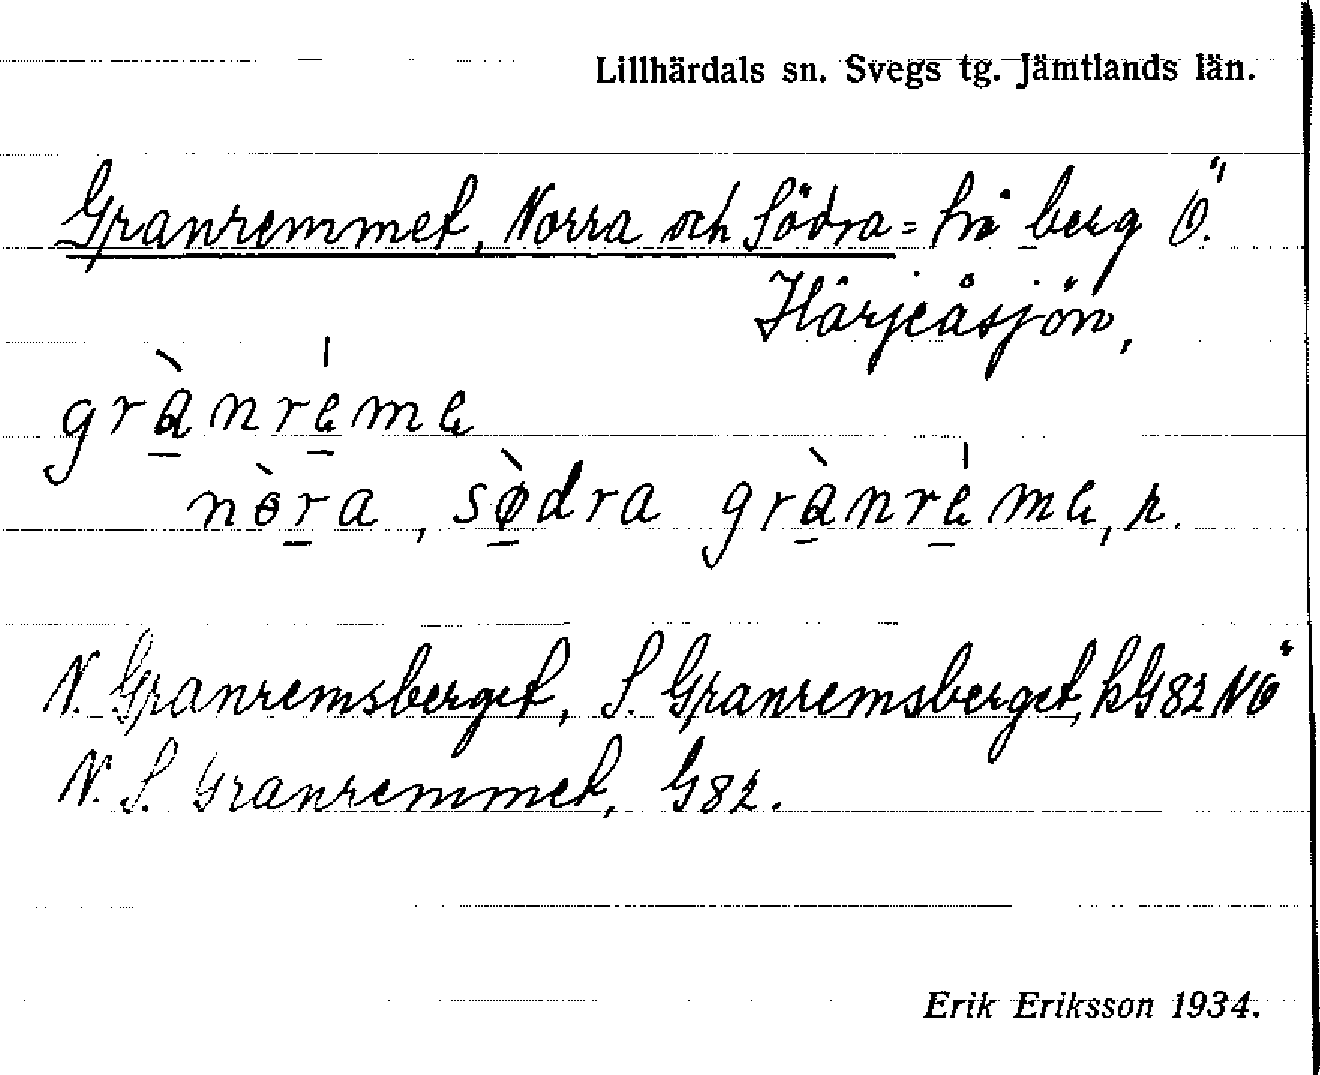 Lillhärdals sn. Svegs tg. Jämtlands län.
Granremmet, Norra och Södra = två berg Ö.
Härjeåsjön,
grànréme
nòra, sø̀dra grànréme, n.
N. Granremsberget, S. Granremsberget, kG82NÖ
N. S. Granremmet, G82.
Erik Eriksson 1934.